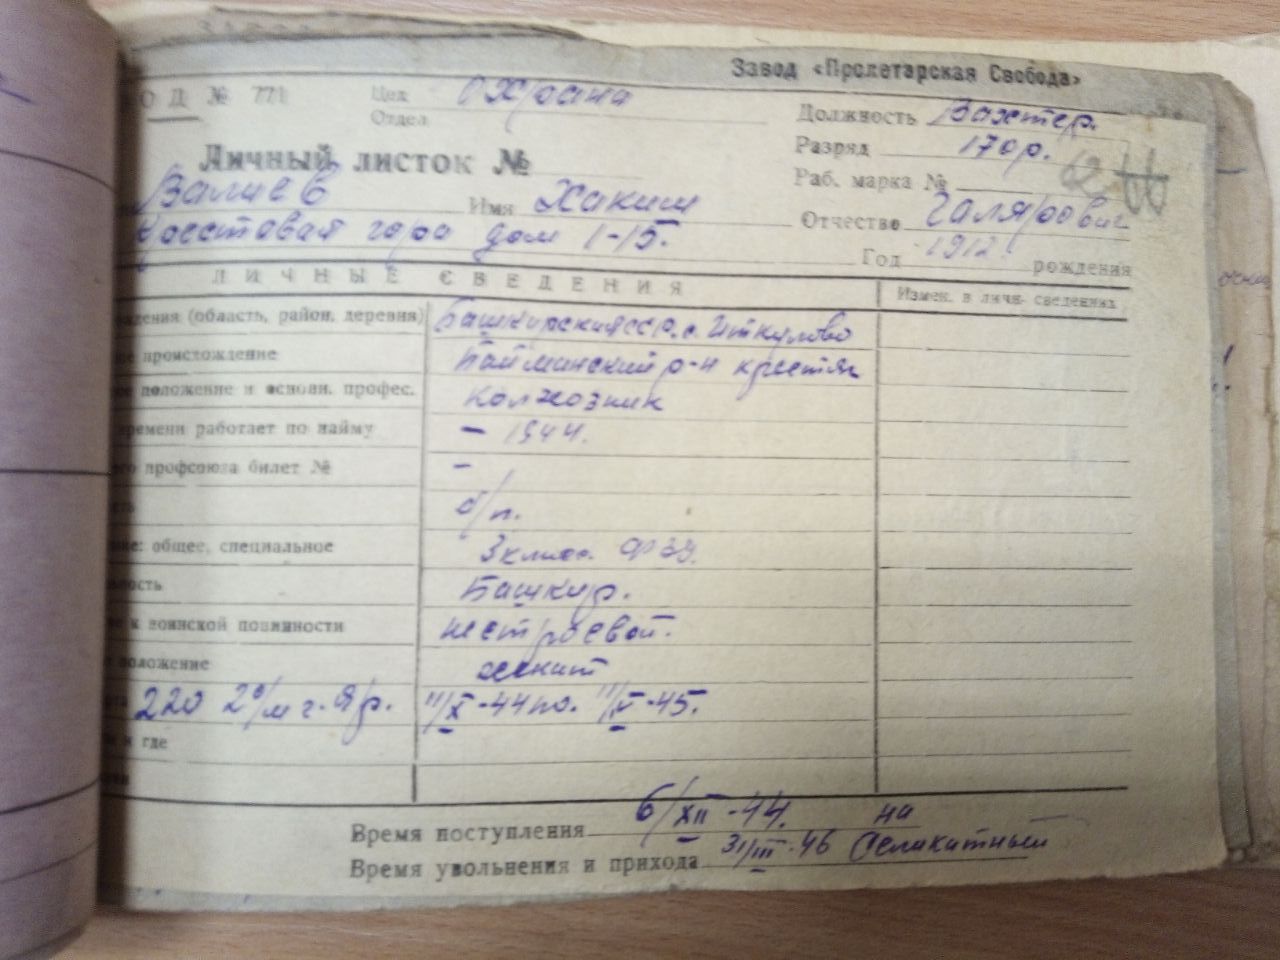 Завод «Пролетарская Свобода»
ОД № 771 Цех Отдел Охрана Должность Вахтер.
Разряд 170р.
Личный листок № Раб. марка №
Валиев Имя Хаким Отчество Галярович
гора дом 1-15. Год 1912. рождения
ЛИЧНЫЕ СВЕДЕНИЯ Измен. в личн. сведениях
дения (область, район, деревня) Башкирская ССР. с. Иткулово
происхождение Баймакский р-н крестьян
ое положение и основн. профес. колхозник
времени работает по найму - 1944.
профсоюза билет № -
б/п.
ие: общее, специальное 3 класс. ФЗУ.
ность Башкир.
к воинской повинности нестроевой.
положение женат
220 11/X-44 по. 11/X-45.
и где
Время поступления 6/XII-44. на
Время увольнения и прихода 31/III-46 Селикатный